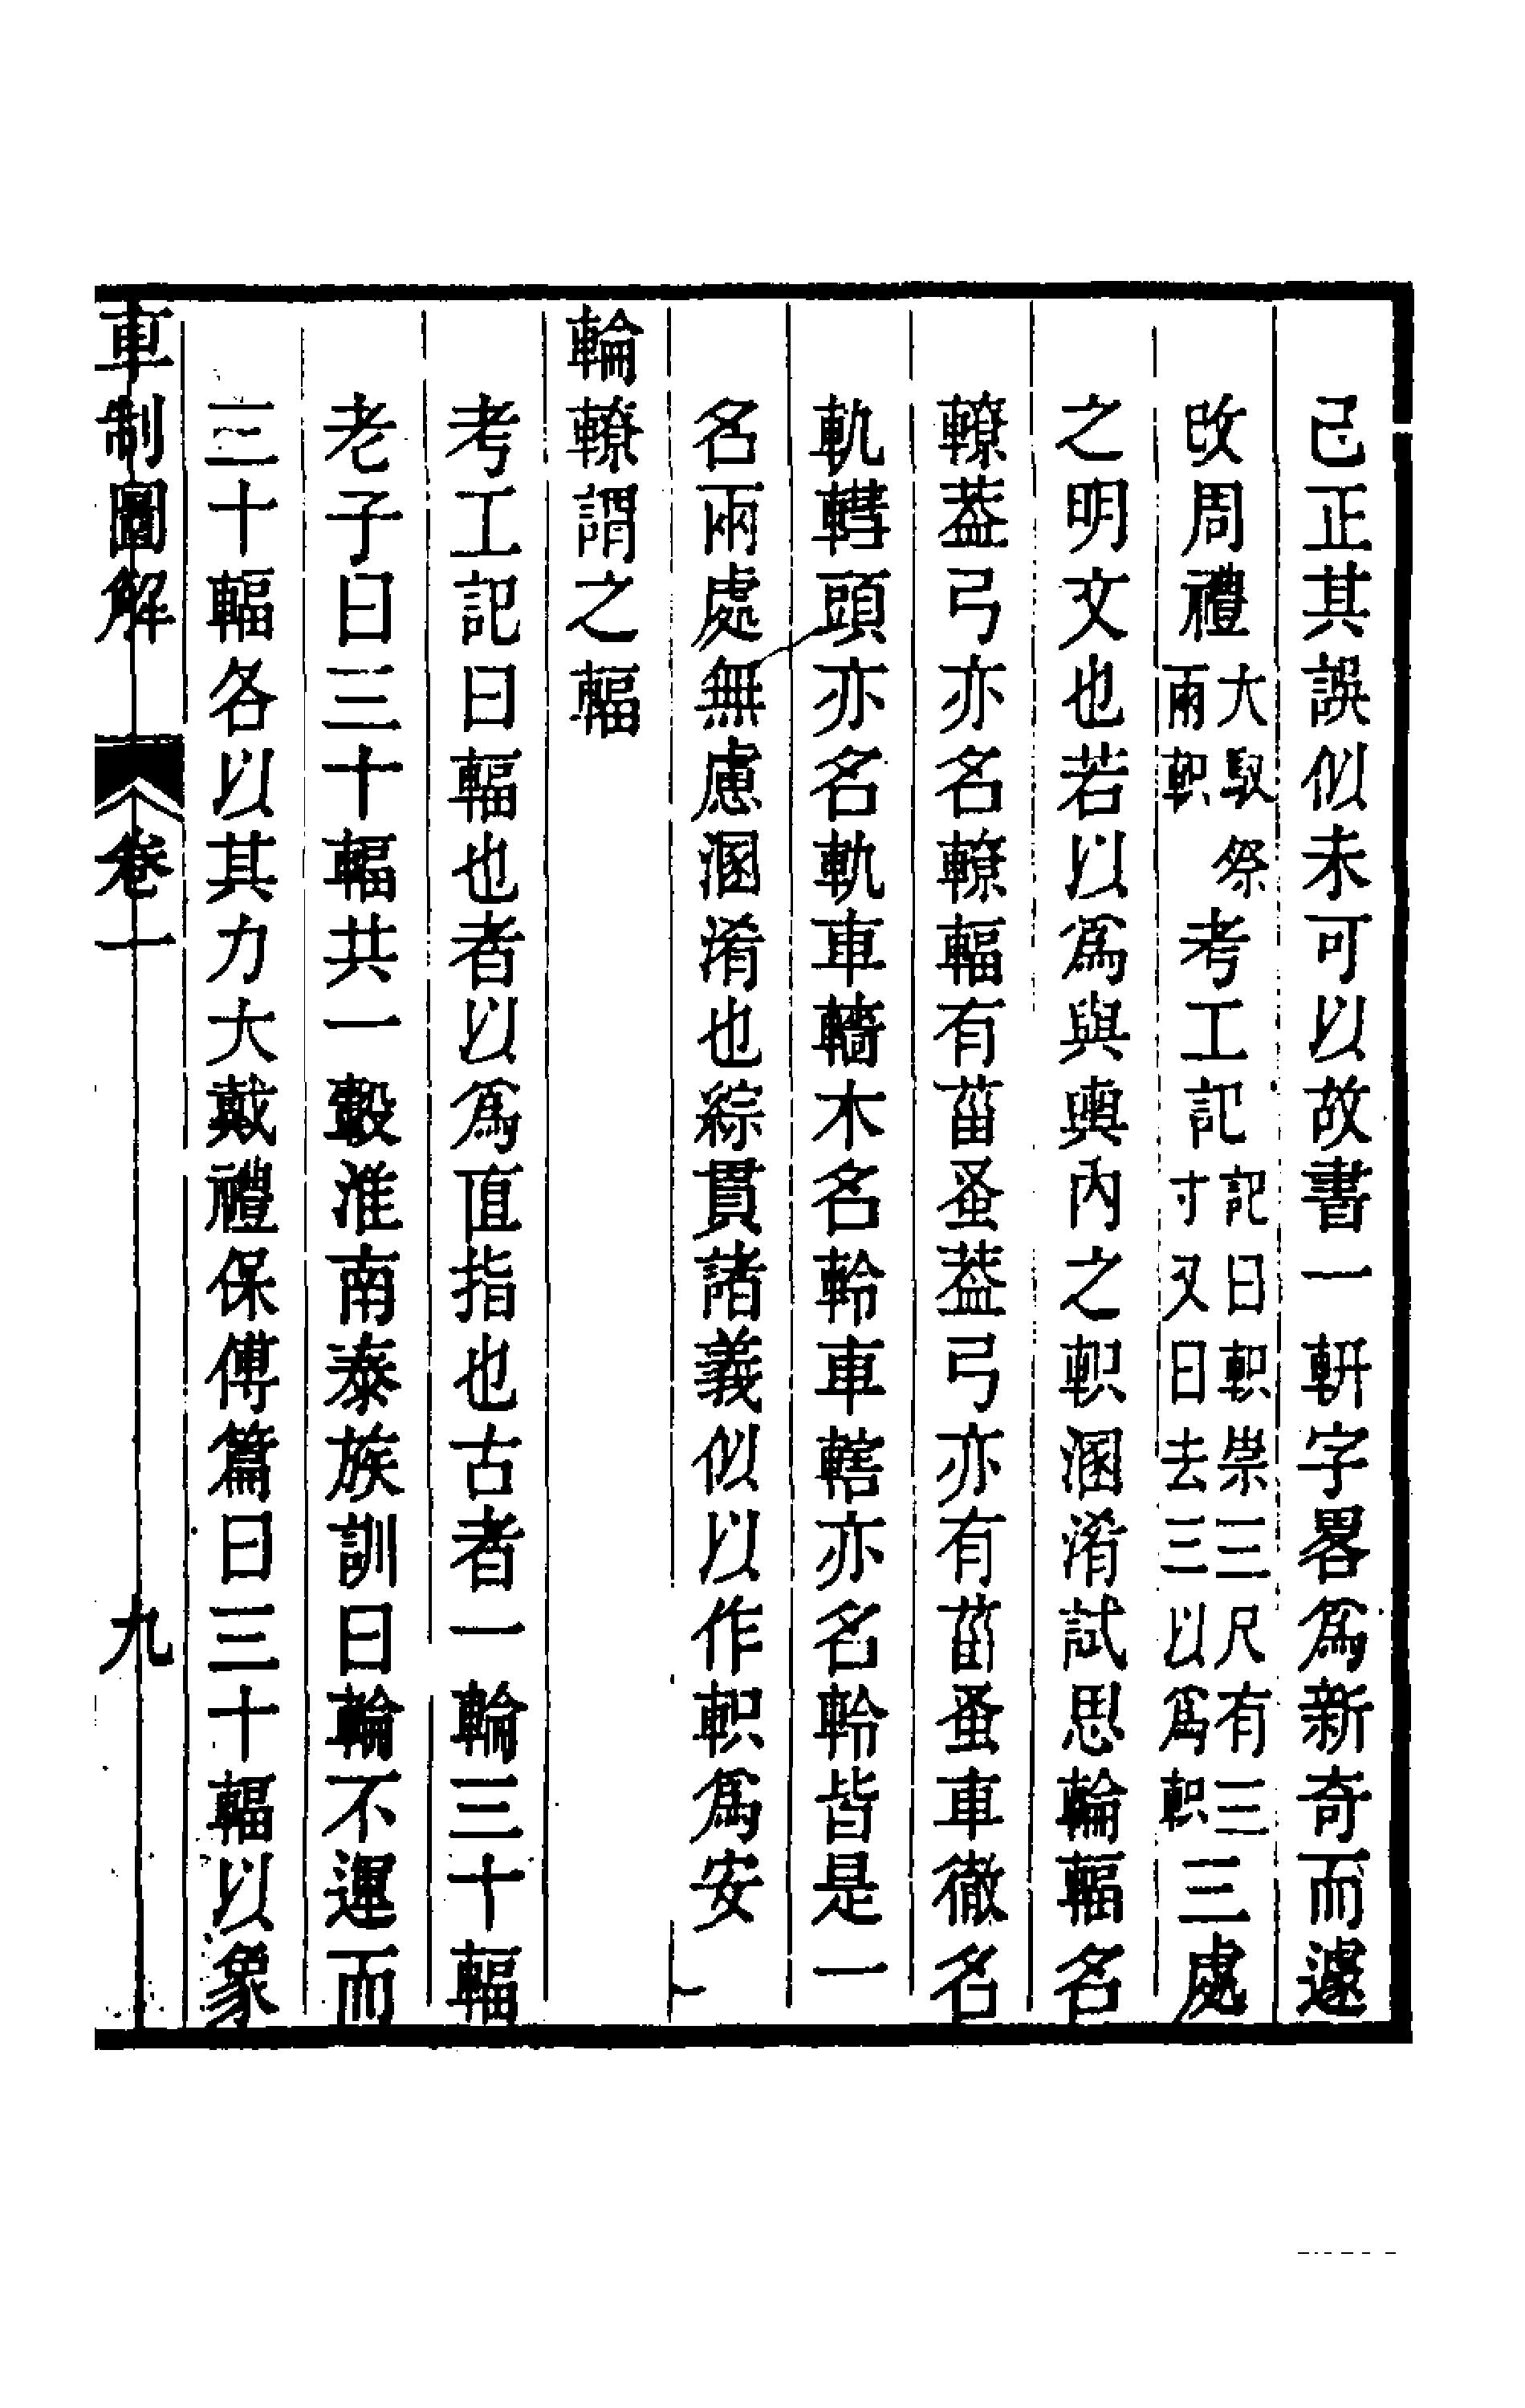 已正其誤似未可以故書一軿字畧爲新奇而遽
改周禮大馭祭兩軹考工記記曰軹崇三尺有三寸又曰去三以爲軹三處
之明文也若以爲與輿內之軹溷淆試思輪輻名
轑葢弓亦名轑輻有菑蚤葢弓亦有菑蚤車徹名
軌轊頭亦名軌車轖木名軨車轄亦名軨皆是一
名兩處無慮溷淆也綜貫諸義似以作軹爲安
輪轑謂之輻
考工記曰輻也者以爲直指也古者一輪三十輻
老子曰三十輻共一轂淮南泰族訓曰輪不運而
三十輻各以其力大戴禮保傅篇曰三十輻以象
車制圖解 卷一 九